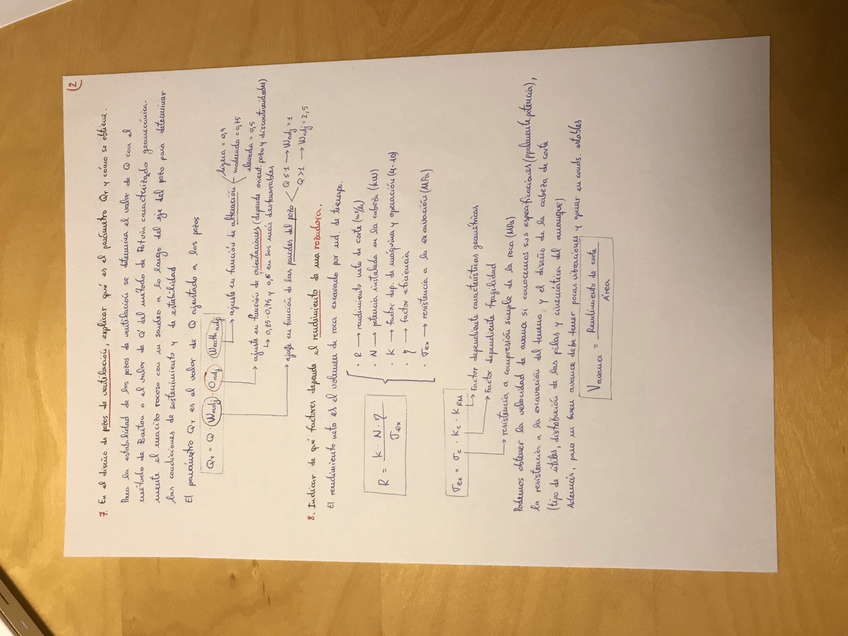 (2
7. En el diseño de pozos de ventilación, explicar qué es el parámetro Qr y cómo se obtiene.
Para la estabilidad de los pozos de ventilación se determina el valor de Q con el
método de Barton o el valor de Q' del método de Potvin caracterizando geomecánica-
mente el macizo rocoso con un sondeo a lo largo del eje del pozo para determinar
las condiciones de sostenimiento y de estabilidad.
El parámetro Qr es el valor de Q ajustado a los pozos
Qr = Q · Wadj · Oadj · Weath adj
→ ajuste en función de alteración
ligera = 0,9
moderada = 0,75
elevada = 0,5
→ ajuste en función de orientaciones (depende orient. pozo y discontinuidades)
↳ 0,85-0,75 y 0,6 en los más desfavorables
→ ajuste en función de las paredes del pozo
Q ≤ 1 → Wadj = 1
Q > 1 → Wadj = 2,5
8. Indicar de qué factores depende el rendimiento de una rozadora.
El rendimiento neto es el volumen de roca excavado por ud. de tiempo.
R = k · N · η / σex
· R → rendimiento neto de corte (m³/h)
· N → potencia instalada en la cabeza (kW)
· K → factor dep. de máquina y operación (4-10)
· η → factor eficiencia
· σex → resistencia a la excavación (MPa)
σex = σc · Kc · KRM
→ Factor dependiente características geométricas
→ Factor dependiente fragilidad
→ resistencia a compresión simple de la roca (MPa)
Podemos obtener la velocidad de avance si conocemos sus especificaciones (ppalmente potencia),
la resistencia a la excavación del terreno y el diseño de la cabeza de corte
(tipo de útiles, distribución de las picas y cinemática del arranque)
Además, para un buen avance debe tener pocas vibraciones y operar en conds. estables
Vavance = Rendimiento de corte / Área